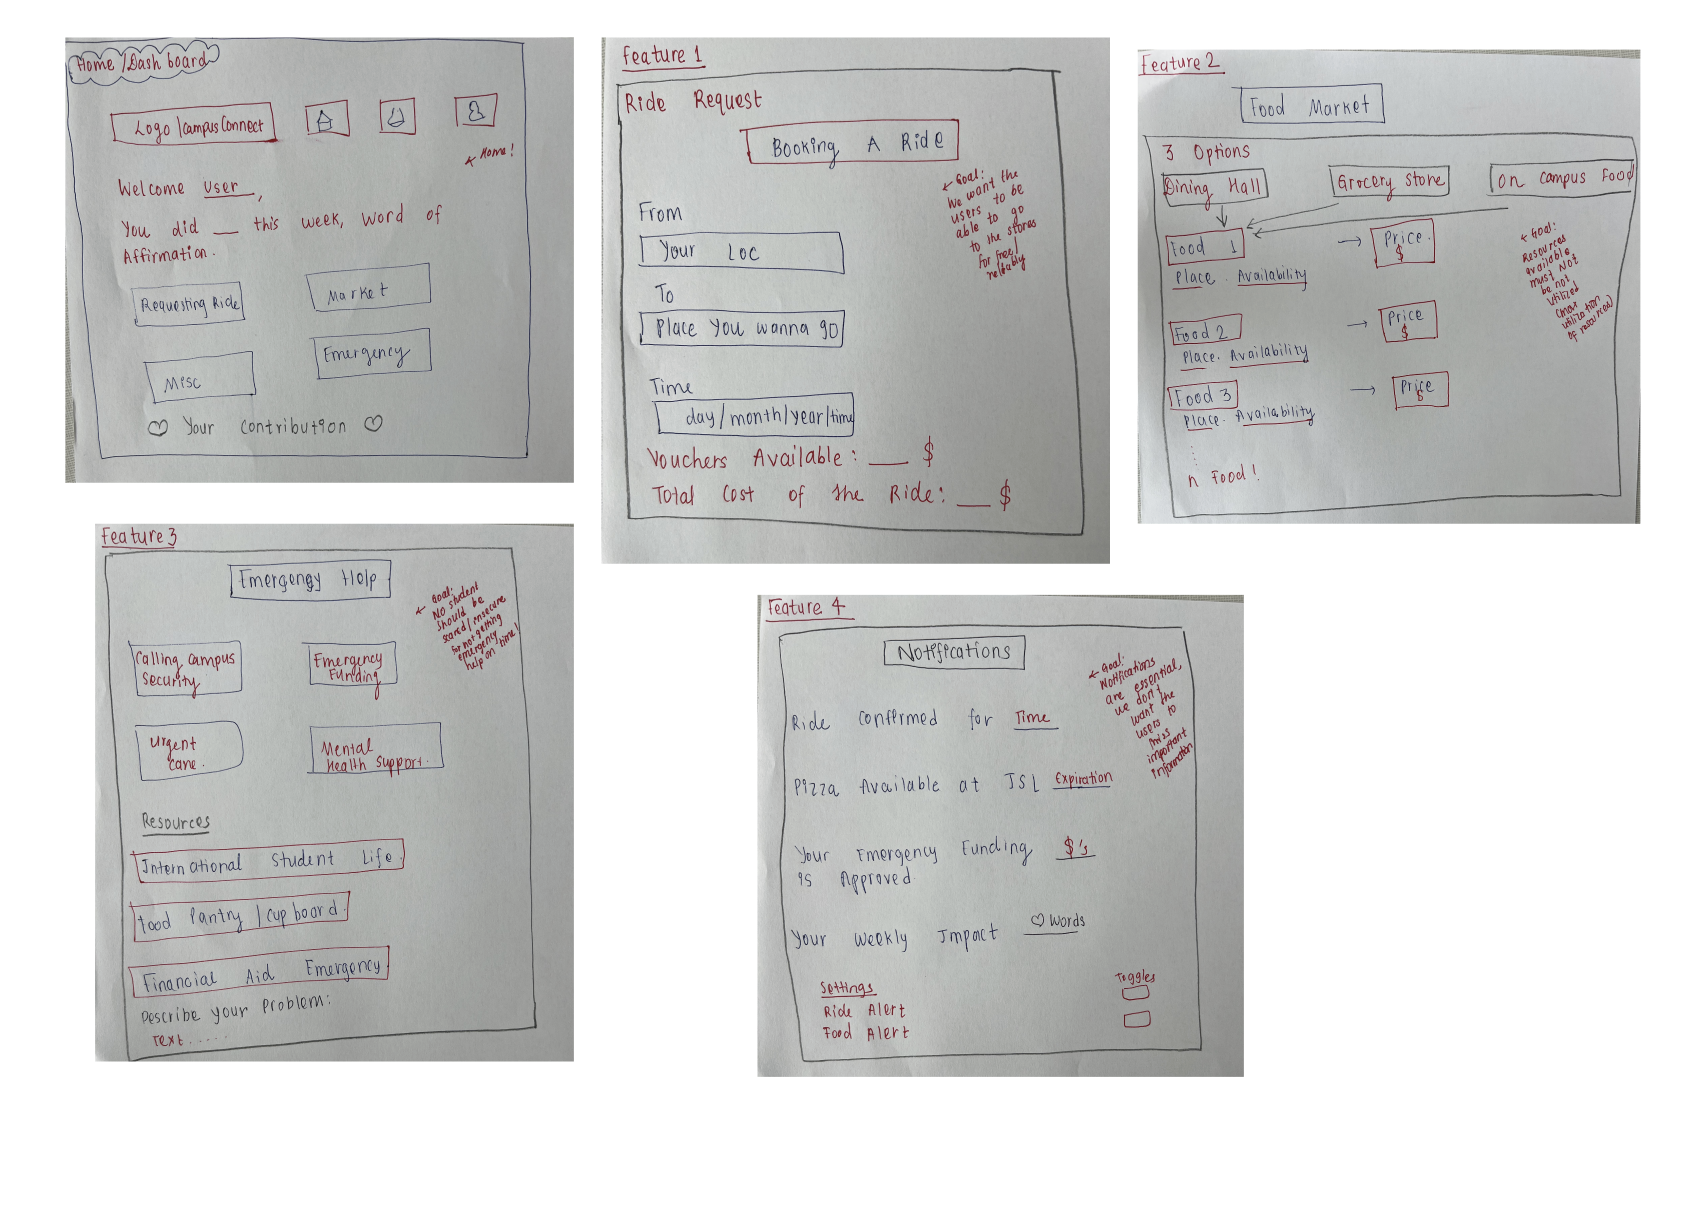 Home/Dash board
Logo/CampusConnect
← Home!
Welcome User,
You did __ this week, Word of
Affirmation.
Requesting Ride
Market
Misc
Emergency
♡ Your Contribution ♡
Feature 1
Ride Request
Booking A Ride
← Goal:
We want the
users to be
able to go
to the stores
for free/
reliably
From
Your Loc
To
Place You wanna go
Time
day/month/year/time
Vouchers Available: __ $
Total Cost of the Ride: __ $
Feature 2
Food Market
3 Options
Dining Hall
Grocery Store
On Campus Food
Food 1
→ Price.
$
Place. Availability
Food 2
→ Price
$
Place. Availability
Food 3
→ Price
$
Place. Availability
n Food!
← Goal:
Resources
available
must Not
be not
utilized
utilization
of resources)
Feature 3
Emergency Help
← Goal:
No student
should be
scared/insecure
for not getting
emergency
help on time!
Calling Campus
Security
Emergency
Funding
Urgent
Care.
Mental
Health Support.
Resources
International Student Life.
Food Pantry/Cupboard.
Financial Aid Emergency
Describe your Problem:
Text.....
Feature 4
Notifications
← Goal:
Notifications
are essential,
we don't
want the
users to
miss
important
information
Ride Confirmed for Time
Pizza Available at JSL Expiration
Your Emergency Funding $'s
is Approved
Your Weekly Impact ♡ Words
Settings
Toggles
Ride Alert
Food Alert